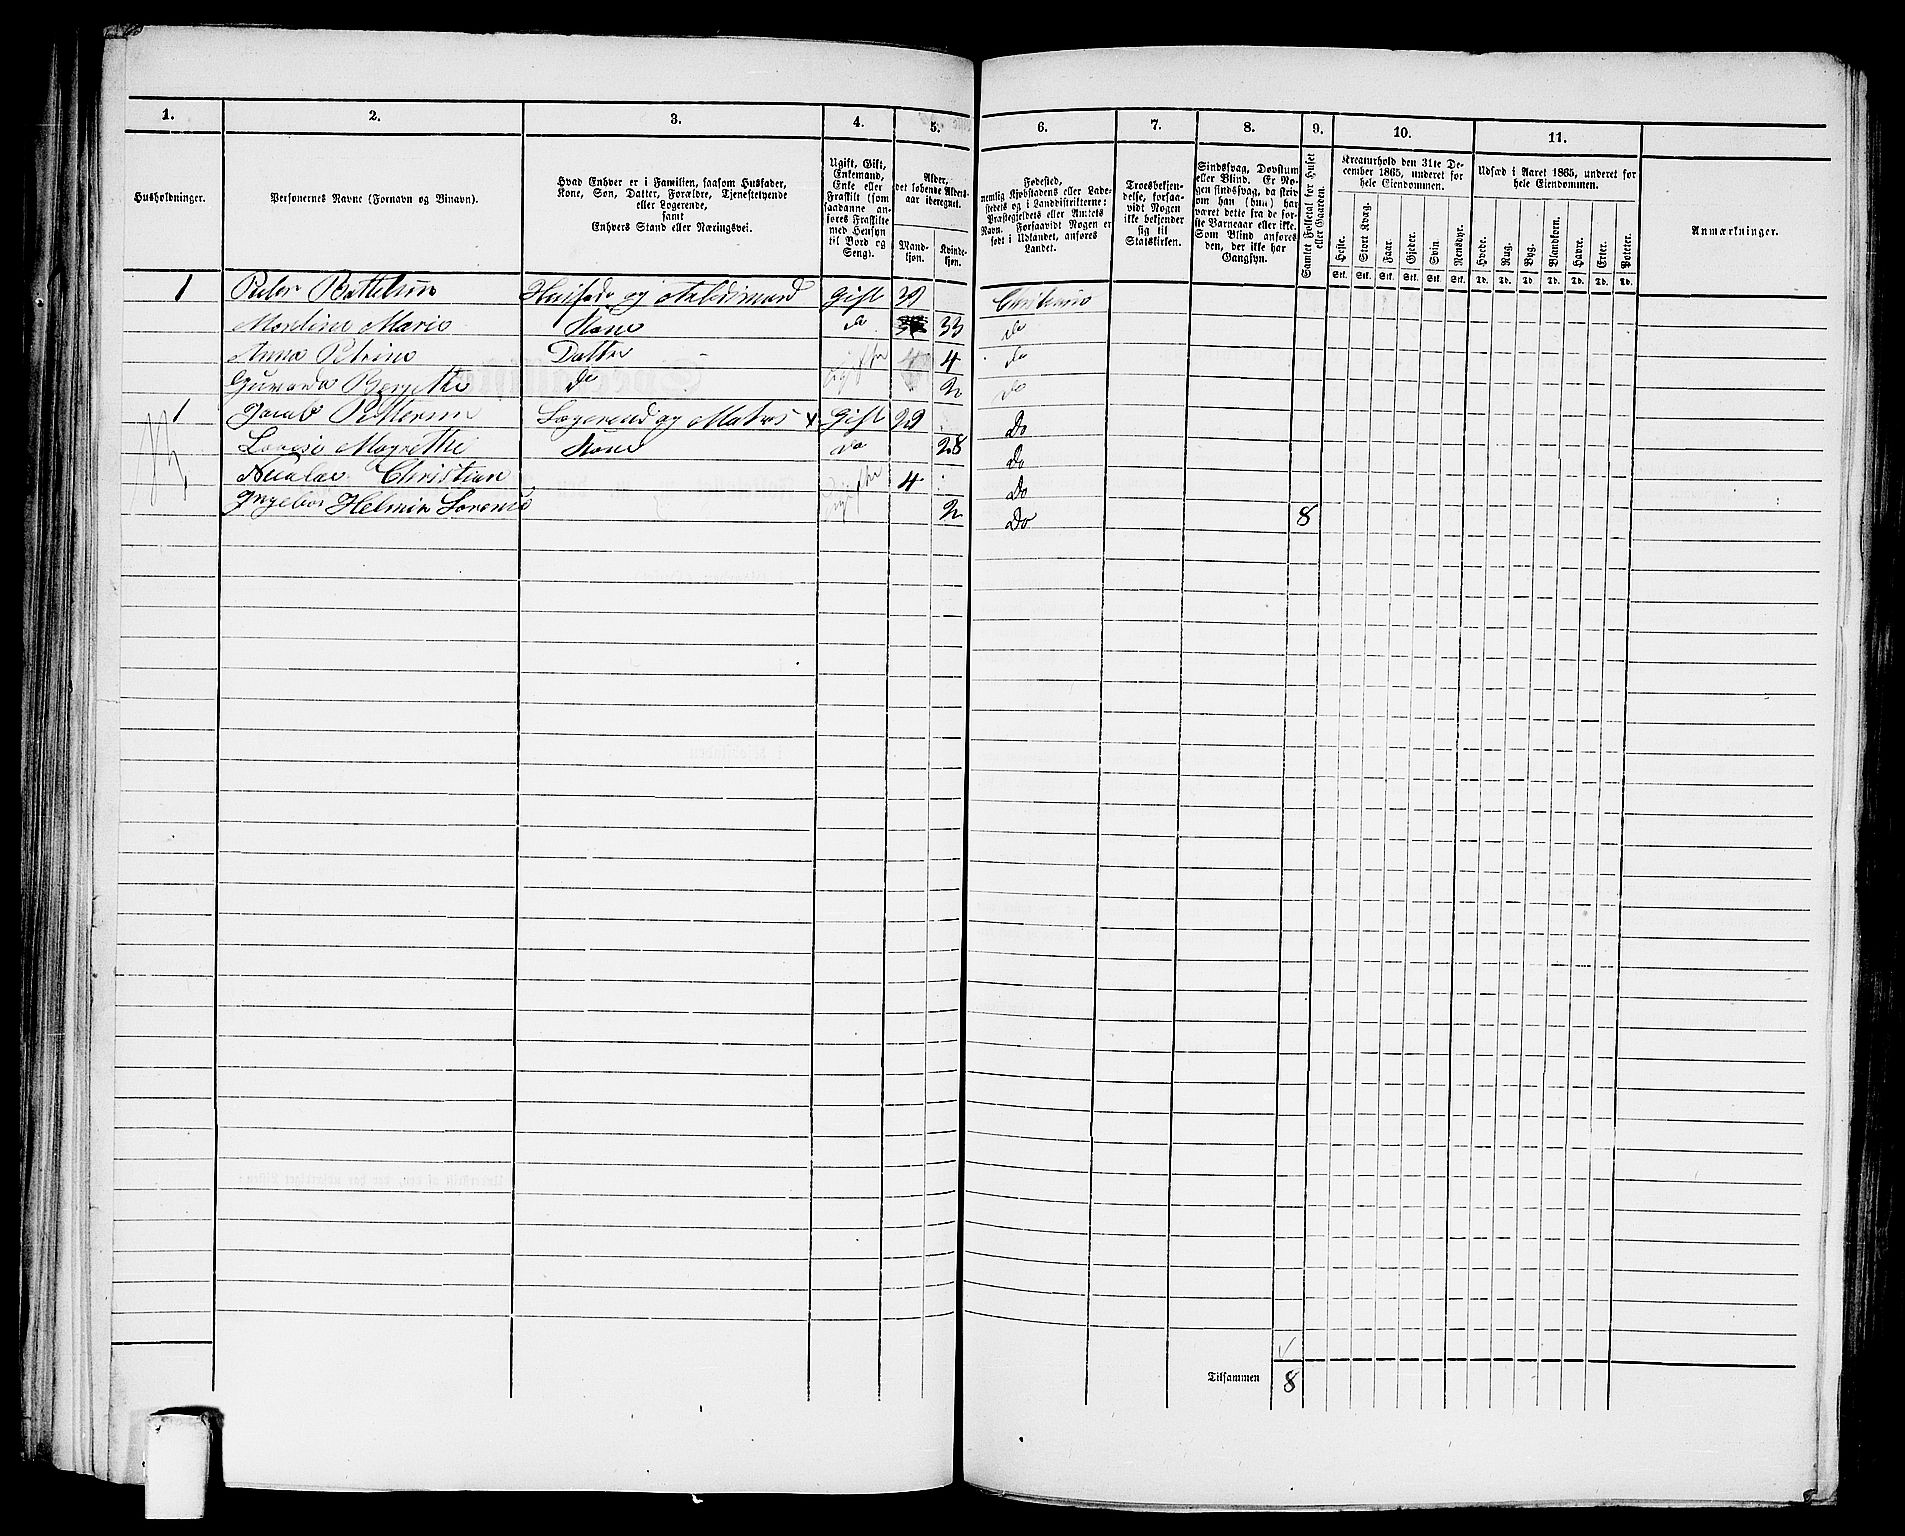 1. 2. 3. 4. 5. 6. 7. 8. 9. 10. 11.
Husholdninger.
Personernes Navne (Fornavn og Binavn).
Hvad Enhver er i Familien, saasom Husfader,
Kone, Søn, Datter, Forældre, Tjenestetyende
eller Logerende,
samt
Enhvers Stand eller Næringsvei.
Ugift, Gift,
Enkemand,
Enke eller
Fraskilt (som
saadanne an-
føres Fraskilte
med Hensyn
til Bord og
Seng).
Alder,
det løbende Alders-
aar iberegnet.
Mand-
kjøn.
Kvinde-
kjøn.
Fødested,
nemlig Kjøbstadens eller Lade-
stedets og i Landdistrikterne:
Præstegjeldets eller Amtets
Navn. Forsaavidt Nogen er
født i Udlandet, anføres
Landet.
Troesbekjen-
delse, forsaa-
vidt Nogen
ikke bekjender
sig til
Statskirken.
Sindssvag, Døvstum
eller Blind. Er No-
gen sindssvag, da skriv
om han (hun) har
været dette fra de før-
ste Barneaar eller ikke.
Som Blind anføres
den, der ikke har
Gangsyn.
Samlet Folketal for Huset
eller Gaarden.
Kreaturhold den 31te De-
cember 1865, underet for
hele Eiendommen.
Heste. Stort Kvæg. Faar. Gjeder. Svin. Rensdyr.
Stk. Stk. Stk. Stk. Stk. Stk.
Udsæd i Aaret 1865, underet for
hele Eiendommen.
Hvede. Rug. Byg. Blandkorn. Havre. Erter. Poteter.
Td. Td. Td. Td. Td. Td. Td.
Anmærkninger.
1 Gift 39
Marie Kone do 33 do
Anna Petrine Datter Ugift 4 do
do 2 do
1 Jacob Pettersen Logerend og Matros x Gift 29 Do
Kone do 28 Do
Christian Ugift 4 Do
2 Do 8
Tilsammen 8